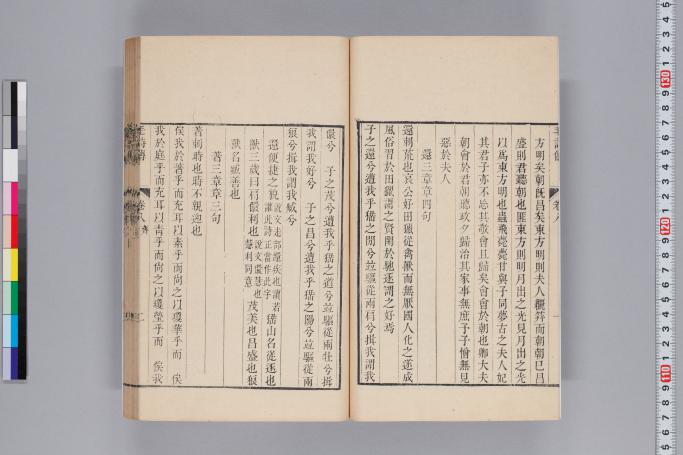 方明矣朝既昌矣東方明則夫人纚笄而朝朝已昌
盛則君聽朝也匪東方則明月出之光見月出之光
以爲東方明也蟲飛薨薨甘與子同夢古之夫人妃
其君子亦不忘其敬會且歸矣會會於朝也卿大夫
朝會於君朝聽政夕歸治其家事無庶予子憎無見
惡於夫人
還三章章四句
還刺荒也哀公好田獵從禽獸而無厭國人化之遂成
風俗習於田獵謂之賢閑於馳逐謂之好焉
子之還兮遭我乎猺之閒兮竝驅從兩肩兮揖我謂我
儇兮 子之茂兮遭我乎猺之道兮竝驅從兩牡兮揖
我謂我好兮 子之昌兮遭我乎猺之陽兮竝驅從兩
狼兮揖我謂我臧兮
還便捷之貌
猺山名從逐也
獸三歲曰肩儇利也
茂美也昌盛也狼
獸名臧善也
著三章章三句
著刺時也時不親迎也
俟我於著乎而充耳以素乎而尚之以瓊華乎而 俟
我於庭乎而充耳以青乎而尚之以瓊瑩乎而 俟我
卷八
130
120
110